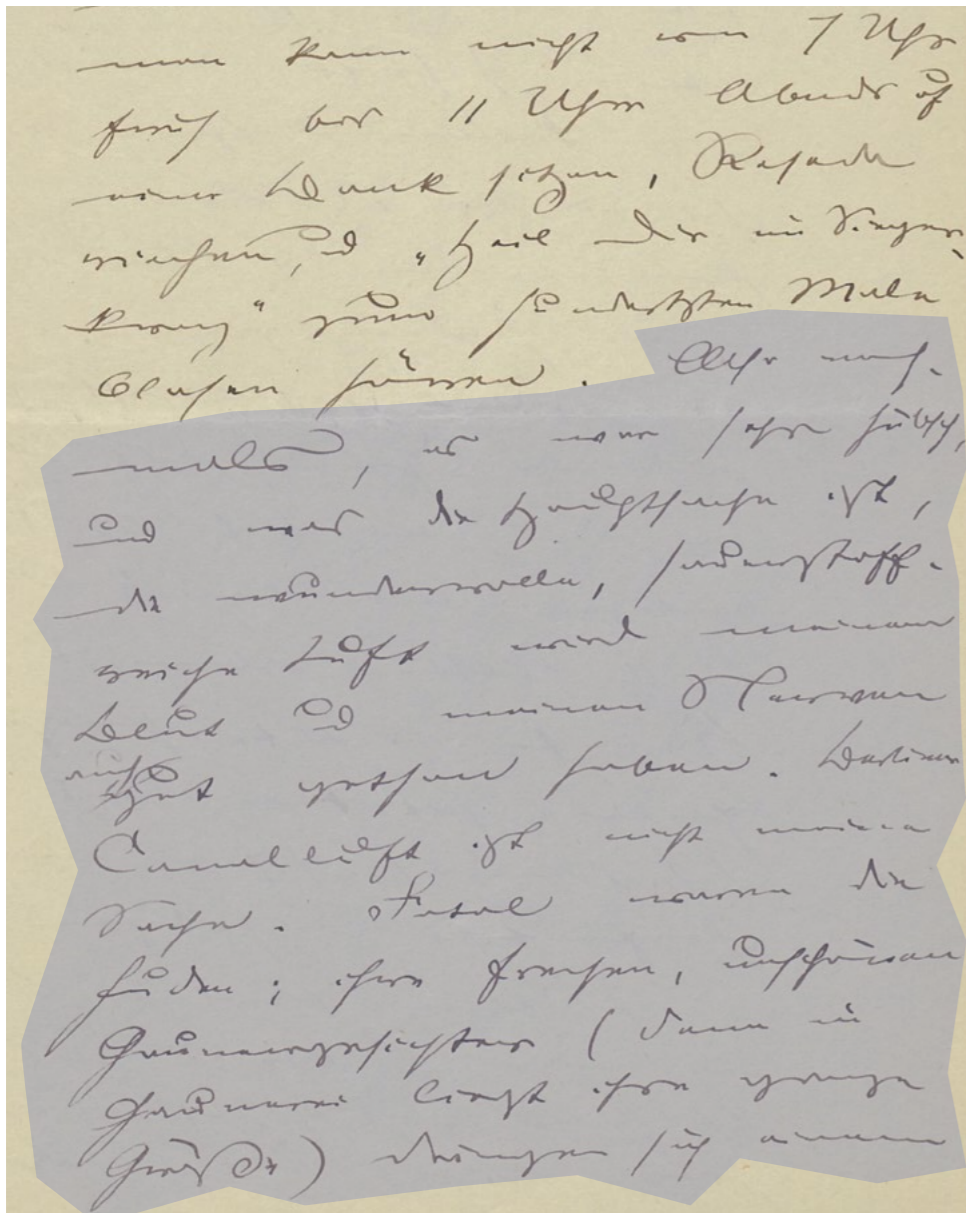 man kann nicht von 7 Uhr
früh bis 11 Uhr Abends auf
einer Bank sitzen, Reseda
riechen, und „Heil dir im Sieger-
kranz“ zum hundertsten Male
blasen hören. Aber noch-
mals, es war sehr hübsch,
und was die Hauptsache ist,
die wundervolle, sauerstoff-
reiche Luft wird meinem
Blut und meinen Nerven
auch gut gethan haben. Berliner
Canalluft ist nicht meine
Sache. Fatal waren die
Juden; ihre frechen, unschönen
Gaunergesichter (denn in
Gaunerei liegt ihre ganze
Größe) drängen sich einem